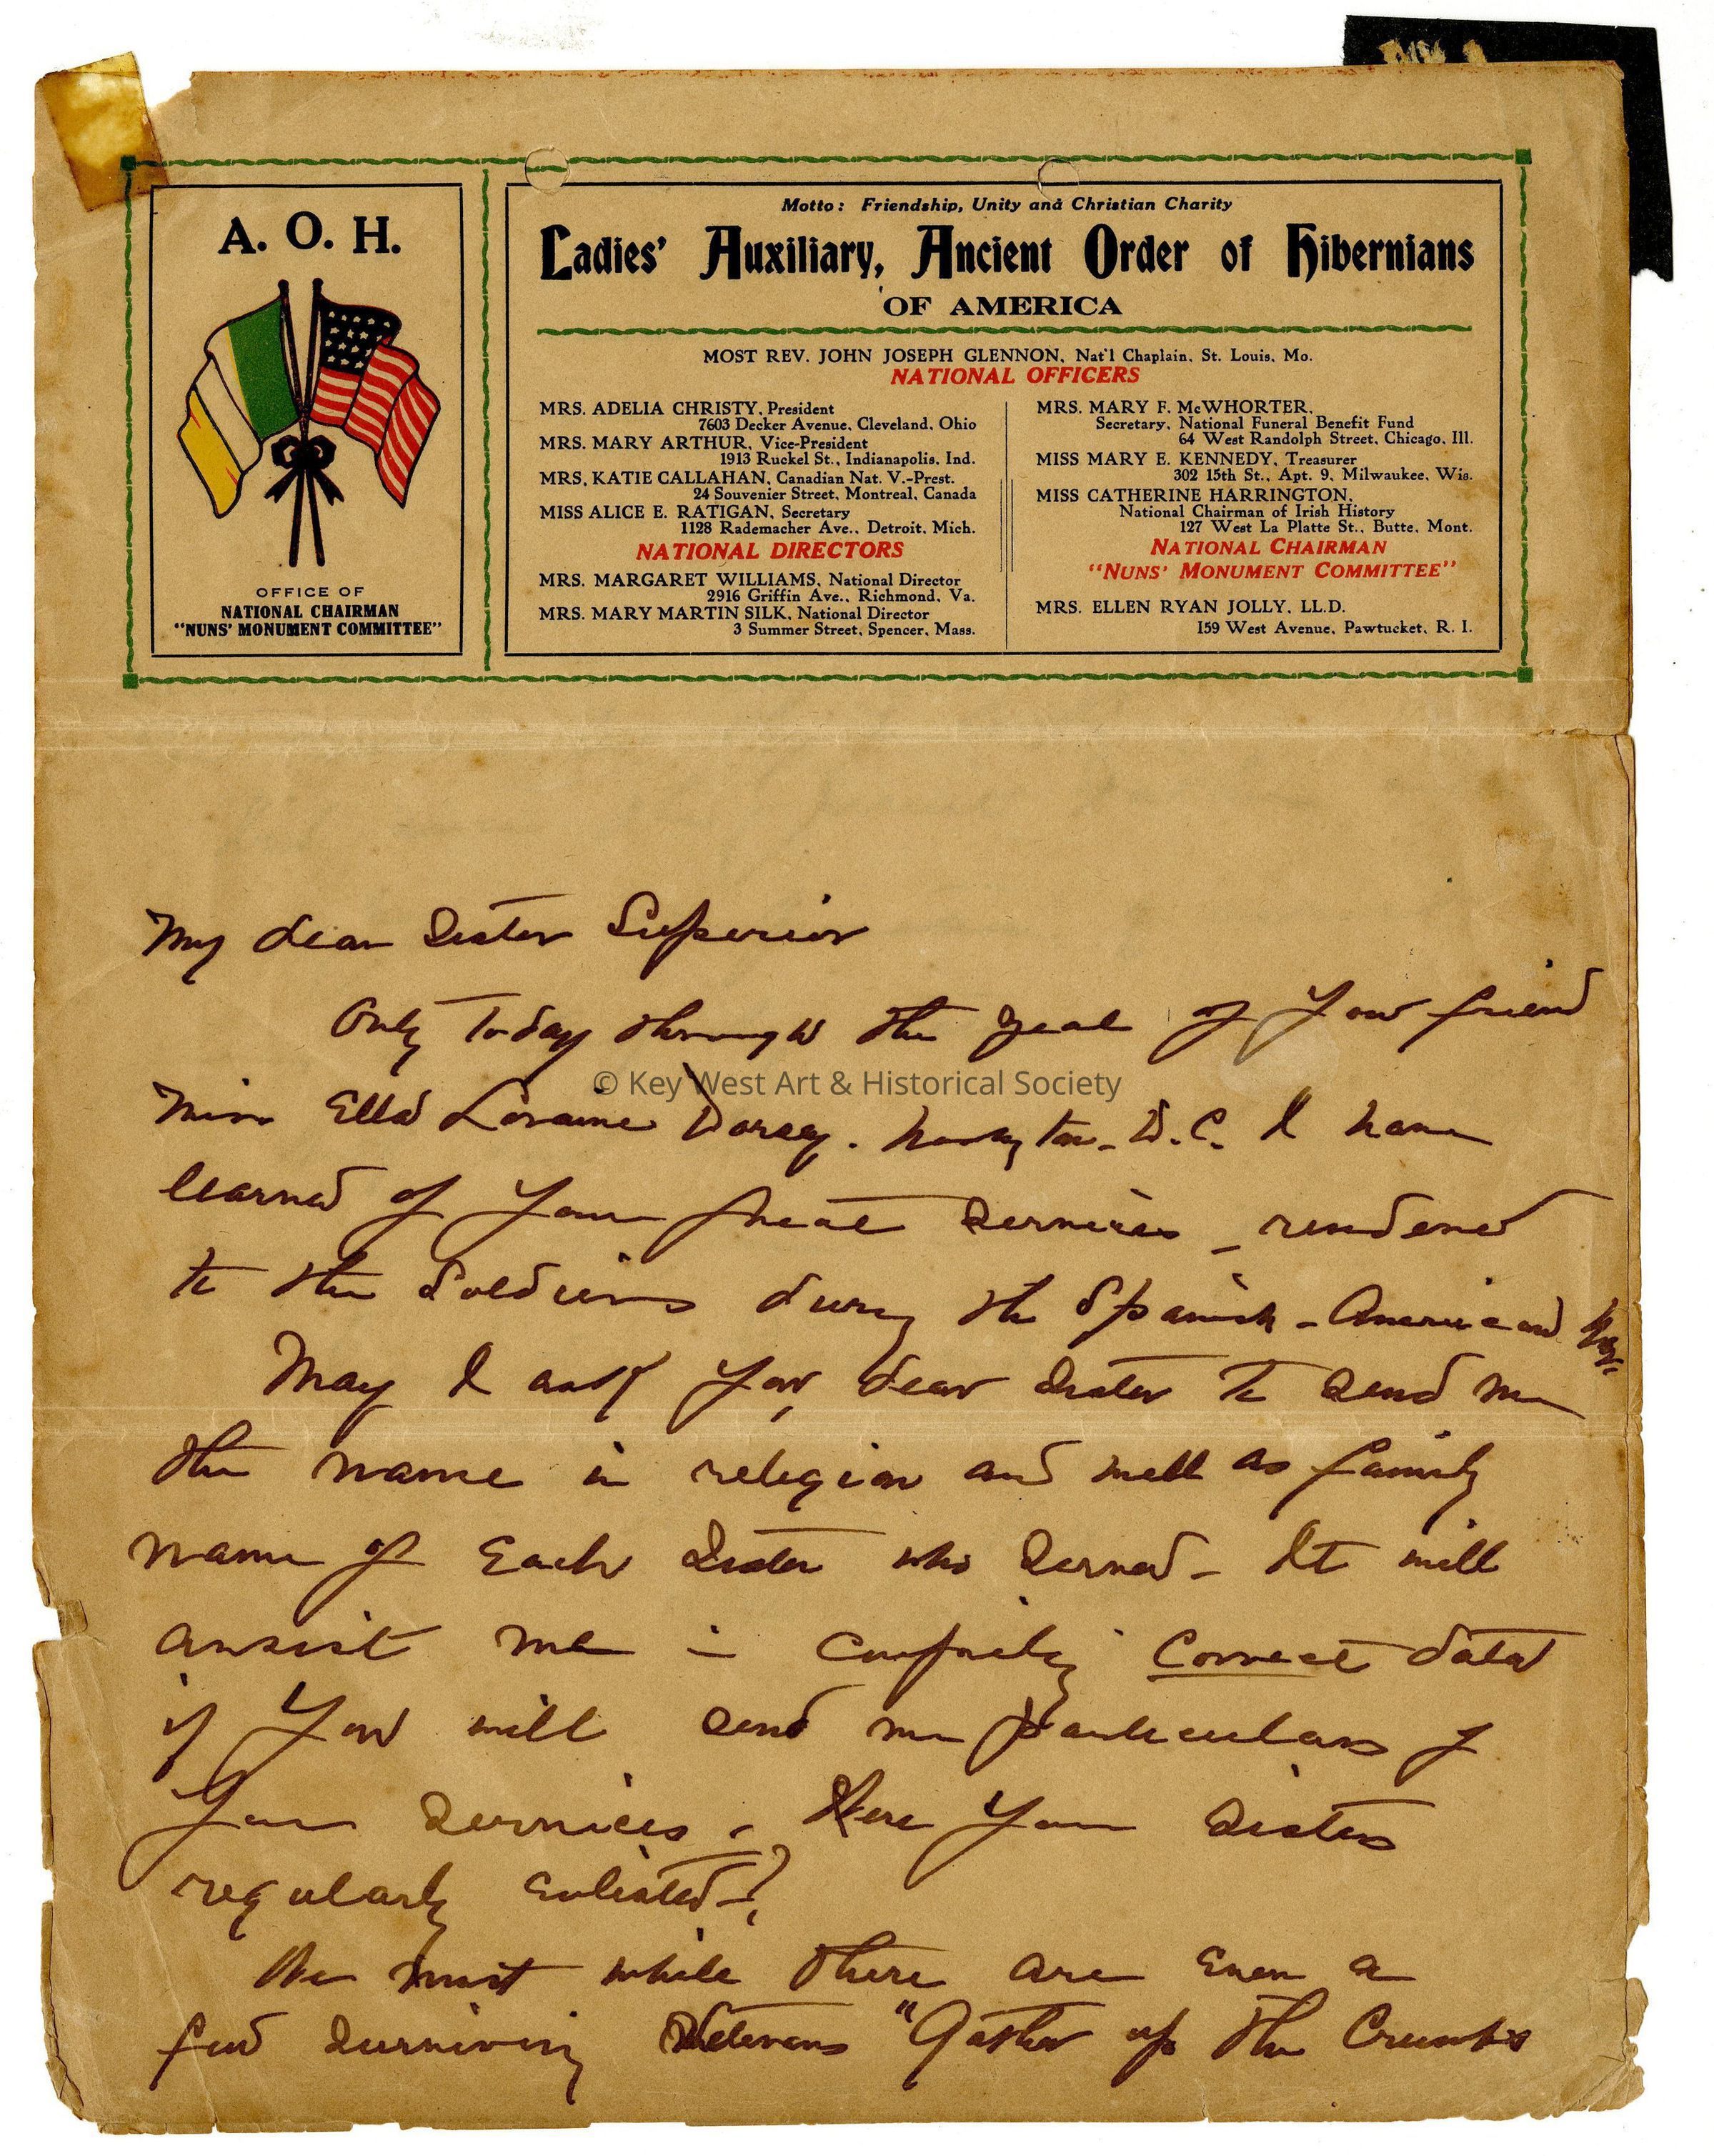 A. O. H.
OFFICE OF
NATIONAL CHAIRMAN
"NUNS' MONUMENT COMMITTEE"
Motto: Friendship, Unity and Christian Charity
Ladies' Auxiliary, Ancient Order of Hibernians
OF AMERICA
MOST REV. JOHN JOSEPH GLENNON, Nat'l Chaplain, St. Louis, Mo.
NATIONAL OFFICERS
MRS. ADELIA CHRISTY, President
7603 Decker Avenue, Cleveland, Ohio
MRS. MARY ARTHUR, Vice-President
1913 Ruckel St., Indianapolis, Ind.
MRS. KATIE CALLAHAN, Canadian Nat. V.-Prest.
24 Souvenier Street, Montreal, Canada
MISS ALICE E. RATIGAN, Secretary
1128 Rademacher Ave., Detroit, Mich.
NATIONAL DIRECTORS
MRS. MARGARET WILLIAMS, National Director
2916 Griffin Ave., Richmond, Va.
MRS. MARY MARTIN SILK, National Director
3 Summer Street, Spencer, Mass.
MRS. MARY F. McWHORTER,
Secretary, National Funeral Benefit Fund
64 West Randolph Street, Chicago, Ill.
MISS MARY E. KENNEDY, Treasurer
302 15th St., Apt. 9, Milwaukee, Wis.
MISS CATHERINE HARRINGTON,
National Chairman of Irish History
127 West La Platte St., Butte, Mont.
NATIONAL CHAIRMAN
"NUNS' MONUMENT COMMITTEE"
MRS. ELLEN RYAN JOLLY, LL.D.
159 West Avenue, Pawtucket, R. I.
My dear Sister Superior
Only Today through the zeal of your friend
© Key West Art & Historical Society
Miss Ella Loraine Dorsey. Washington. D.C. I have
learned of your great services - rendered
to the Soldiers during the Spanish-American War.
May I ask you, dear Sister to send me
the name in religion and well as family
name of Each Sister who served - It will
assist me in compiling correct data
if you will send me particulars of
your services. Were your Sisters
regularly enlisted-?
We must while there are even a
few surviving Veterans "Gather up the Crumbs